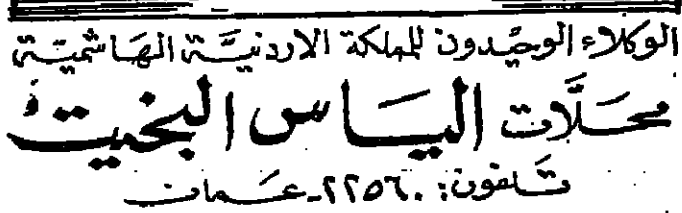 الوكلاء الوحيدون للمملكة الاردنيَّة الهاشميَّة
محلَّات اليَاس البخيت
تلفون: ٢٢٥٦٠ - عمان